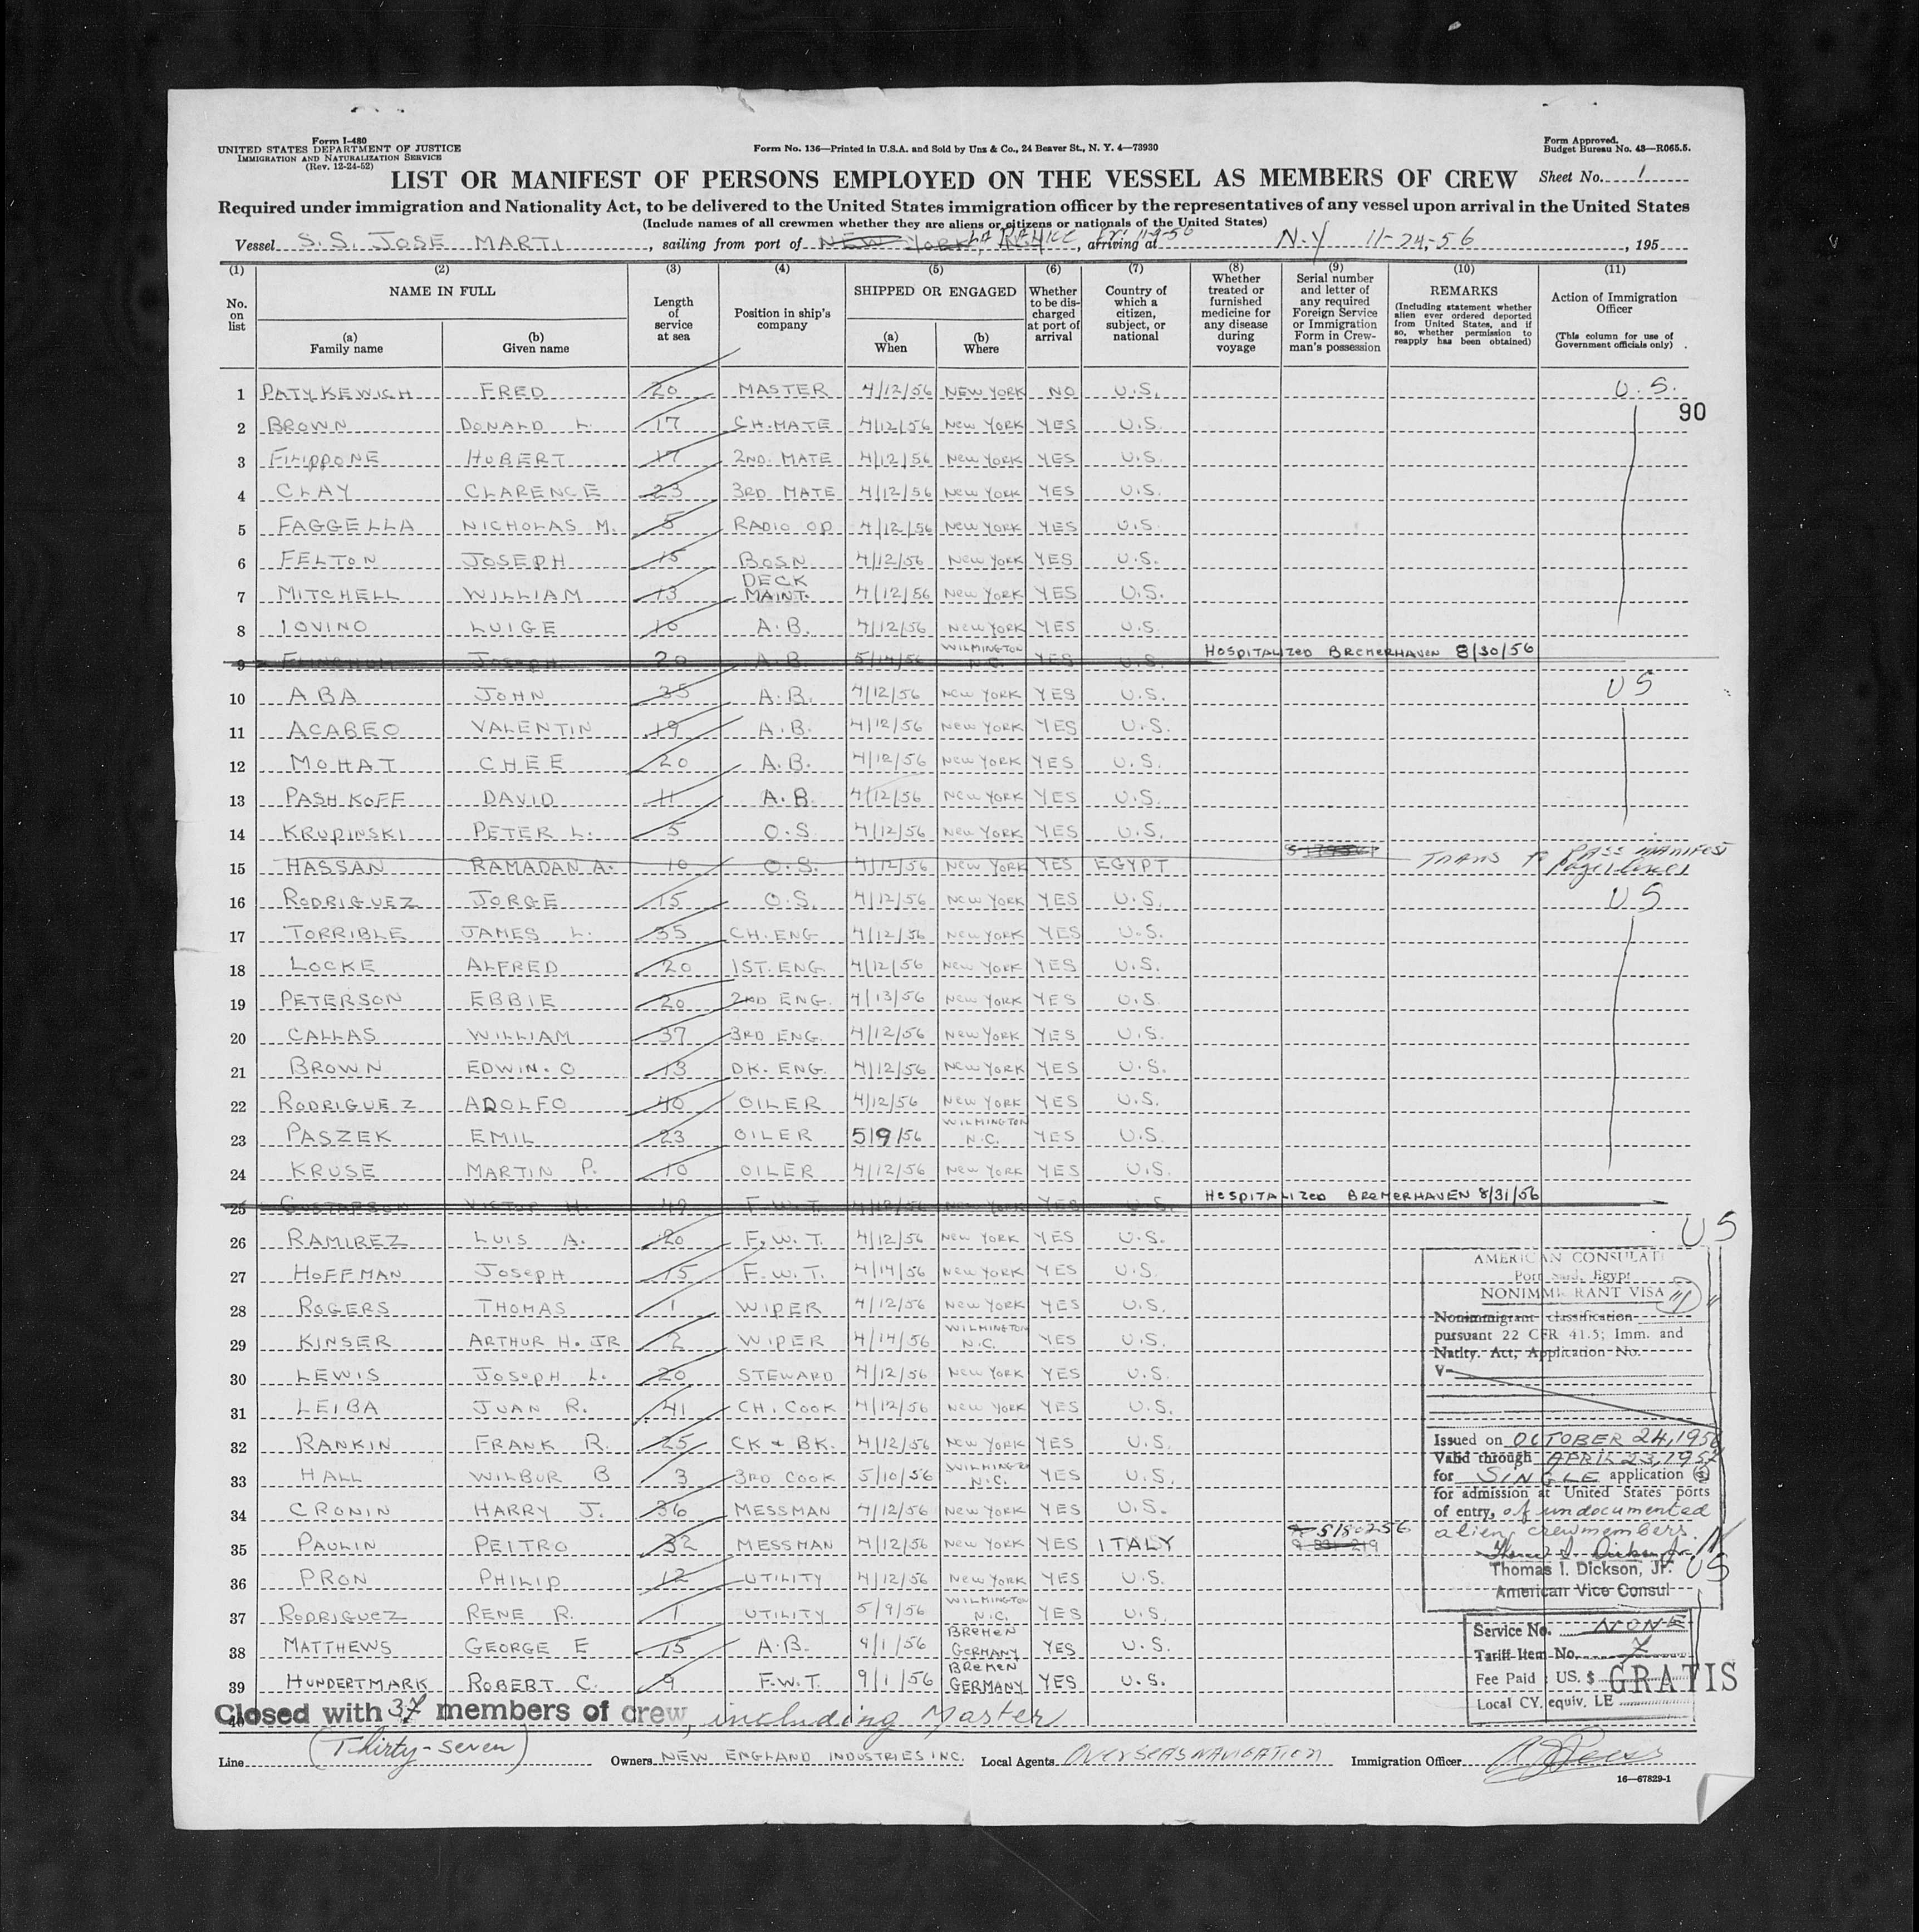 Form I-480
UNITED STATES DEPARTMENT OF JUSTICE
IMMIGRATION AND NATURALIZATION SERVICE
(Rev. 12-24-52)
Form No. 136—Printed in U.S.A. and Sold by Unz & Co., 24 Beaver St., N. Y. 4—73930
Form Approved.
Budget Bureau No. 43—R065.5.
LIST OR MANIFEST OF PERSONS EMPLOYED ON THE VESSEL AS MEMBERS OF CREW
Sheet No. 1
Required under immigration and Nationality Act, to be delivered to the United States immigration officer by the representatives of any vessel upon arrival in the United States
(Include names of all crewmen whether they are aliens or citizens or nationals of the United States)
Vessel S.S. JOSE MARTI, sailing from port of NEW YORK, arriving at N.Y 11-24-56, 195
(1) (2) (3) (4) (5) (6) (7) (8) (9) (10) (11)
No. on list
NAME IN FULL
(a) Family name
(b) Given name
Length of service at sea
Position in ship's company
SHIPPED OR ENGAGED
(a) When
(b) Where
Whether to be discharged at port of arrival
Country of which a citizen, subject, or national
Whether treated or furnished medicine for any disease during voyage
Serial number and letter of any required Foreign Service or Immigration Form in Crewman's possession
REMARKS
(Including statement whether alien ever ordered deported from United States, and if so, whether permission to reapply has been obtained)
Action of Immigration Officer
(This column for use of Government officials only)
1 PATYKEWICH FRED 20 MASTER 4/12/56 NEW YORK NO U.S. U.S.
90
2 BROWN DONALD L. 17 CH.MATE 4/12/56 NEW YORK YES U.S.
3 FILIPPONE HUBERT 17 2ND. MATE 4/12/56 NEW YORK YES U.S.
4 CLAY CLARENCE 23 3RD MATE 4/12/56 NEW YORK YES U.S.
5 FAGGELLA NICHOLAS M. 5 RADIO OP 4/12/56 NEW YORK YES U.S.
6 FELTON JOSEPH 15 BOSN 4/12/56 NEW YORK YES U.S.
7 MITCHELL WILLIAM 13 DECK MAINT. 4/12/56 NEW YORK YES U.S.
8 IOVINO LUIGE 10 A.B. 4/12/56 NEW YORK YES U.S.
9 JOSEPH 20 A.B. 5/14/56 WILMINGTON N.C. YES U.S. HOSPITALIZED BREMERHAVEN 8/30/56
10 ABA JOHN 35 A.B. 4/12/56 NEW YORK YES U.S. US
11 ACABEO VALENTIN 19 A.B. 4/12/56 NEW YORK YES U.S.
12 MOHAT CHEE 20 A.B. 4/12/56 NEW YORK YES U.S.
13 PASHKOFF DAVID 11 A.B. 4/12/56 NEW YORK YES U.S.
14 KRUPINSKI PETER L. 5 O.S. 4/12/56 NEW YORK YES U.S.
15 HASSAN RAMADAN A. 10 O.S. 4/12/56 NEW YORK YES EGYPT TRANS TO PASS MANIFEST
16 RODRIGUEZ JORGE 15 O.S. 4/12/56 NEW YORK YES U.S. US
17 TORRIBLE JAMES L. 35 CH. ENG 4/12/56 NEW YORK YES U.S.
18 LOCKE ALFRED 20 1ST. ENG 4/12/56 NEW YORK YES U.S.
19 PETERSON EBBIE 20 2ND ENG. 4/13/56 NEW YORK YES U.S.
20 CALLAS WILLIAM 37 3RD ENG. 4/12/56 NEW YORK YES U.S.
21 BROWN EDWIN. O 13 DK. ENG. 4/12/56 NEW YORK YES U.S.
22 RODRIGUEZ ADOLFO 40 OILER 4/12/56 NEW YORK YES U.S.
23 PASZEK EMIL 23 OILER 5/9/56 WILMINGTON N.C. YES U.S.
24 KRUSE MARTIN P. 10 OILER 4/12/56 NEW YORK YES U.S.
25 GUSTAFSON VICTOR H. 49 F.W.T. 4/12/56 NEW YORK YES U.S. HOSPITALIZED BREMERHAVEN 8/31/56
26 RAMIREZ LUIS A. 20 F.W.T. 4/12/56 NEW YORK YES U.S. US
27 HOFFMAN JOSEPH 15 F.W.T. 4/14/56 NEW YORK YES U.S.
28 ROGERS THOMAS 1 WIPER 4/12/56 NEW YORK YES U.S.
29 KINSER ARTHUR H. JR 2 WIPER 4/14/56 WILMINGTON N.C. YES U.S.
30 LEWIS JOSEPH L. 20 STEWARD 4/12/56 NEW YORK YES U.S.
31 LEIBA JUAN R. 41 CH. COOK 4/12/56 NEW YORK YES U.S.
32 RANKIN FRANK R. 25 CK & BK. 4/12/56 NEW YORK YES U.S.
33 HALL WILBUR B 3 3RD COOK 5/10/56 WILMINGTON N.C. YES U.S.
34 CRONIN HARRY J. 36 MESSMAN 4/12/56 NEW YORK YES U.S.
35 PAULIN PEITRO 32 MESSMAN 4/12/56 NEW YORK YES ITALY
36 PRON PHILIP 12 UTILITY 4/12/56 NEW YORK YES U.S. US
37 RODRIGUEZ RENE R. 1 UTILITY 5/9/56 WILMINGTON N.C. YES U.S.
38 MATTHEWS GEORGE E 15 A.B. 9/1/56 BREMEN GERMANY YES U.S.
39 HUNDERTMARK ROBERT C. 9 F.W.T. 9/1/56 BREMEN GERMANY YES U.S.
AMERICAN CONSULATE
Port Said, Egypt
NONIMMIGRANT VISA
Nonimmigrant classification
pursuant 22 CFR 41.5; Imm. and
Natlty. Act, Application No.
V-
Issued on OCTOBER 24, 1956
Valid through APRIL 23, 1957
for SINGLE application (s)
for admission at United States ports
of entry, of undocumented
alien crewmembers.
Thomas I. Dickson, Jr.
American Vice Consul
Service No. NONE
Tariff Item No. 7
Fee Paid : US. $ GRATIS
Local CY. equiv. LE
40
Closed with 37 members of crew, including Master
(Thirty-seven)
Line Owners NEW ENGLAND INDUSTRIES INC. Local Agents OVERSEAS NAVIGATION Immigration Officer
16—67829-1